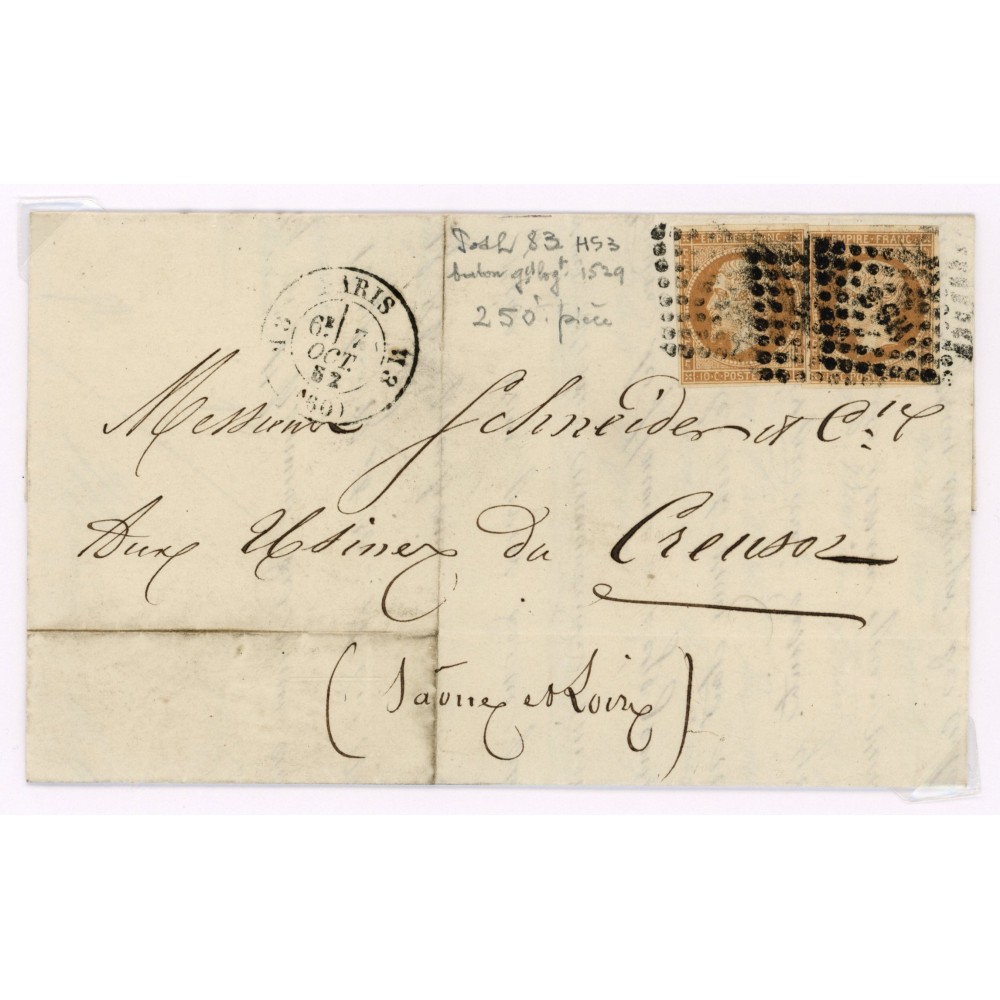 83 HS3
1529
250 f. pièce
PARIS
6E 7
OCT.
62
(60)
EMPIRE FRANC
10 C POSTES
Messieurs Schneider et Cie
Aux Usines du Creusot
(Saône et Loire)